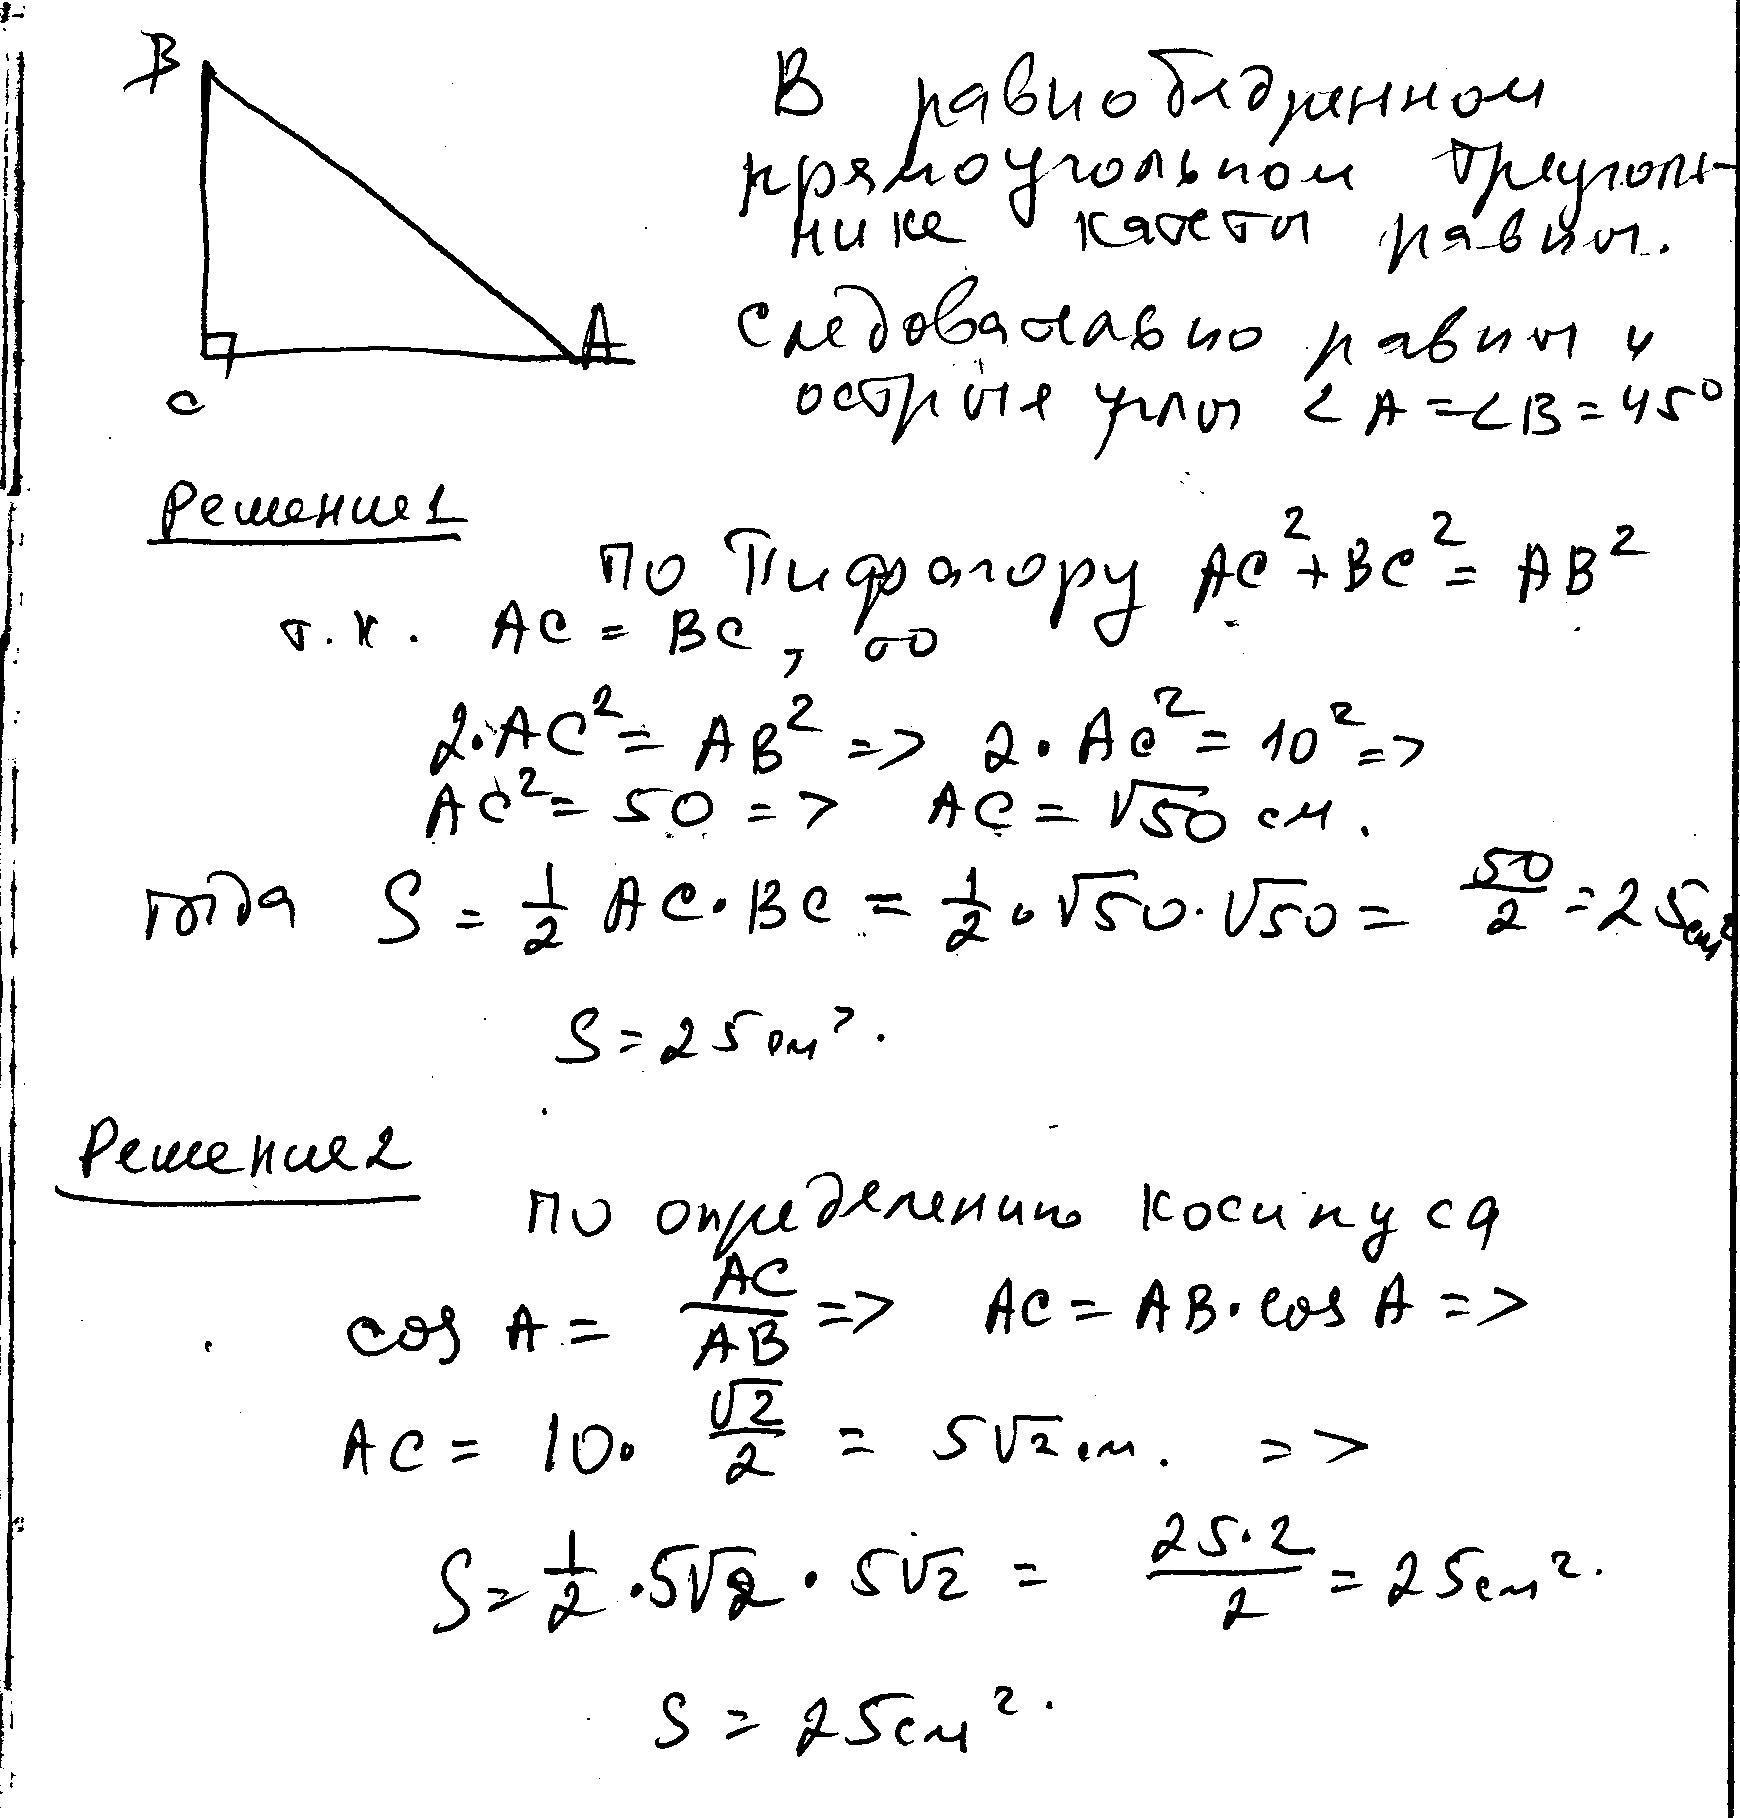 В
В равнобедренном
прямоугольном треуголь-
нике катеты равны.
А
Следовательно равны и
С
острые углы ∠A=∠B=45°
Решение1
по Пифагору AC²+BC²=AB²
т.к. AC=BC, то
2·AC²=AB² => 2·AC²=10² =>
AC²=50 => AC=√50 см.
тогда S=1/2 AC·BC=1/2·√50·√50=50/2=25см²
S=25см².
Решение2
по определению косинуса
cos A=AC/AB => AC=AB·cos A =>
AC=10·√2/2=5√2см. =>
S=1/2·5√2·5√2=25·2/2=25см².
S=25см².